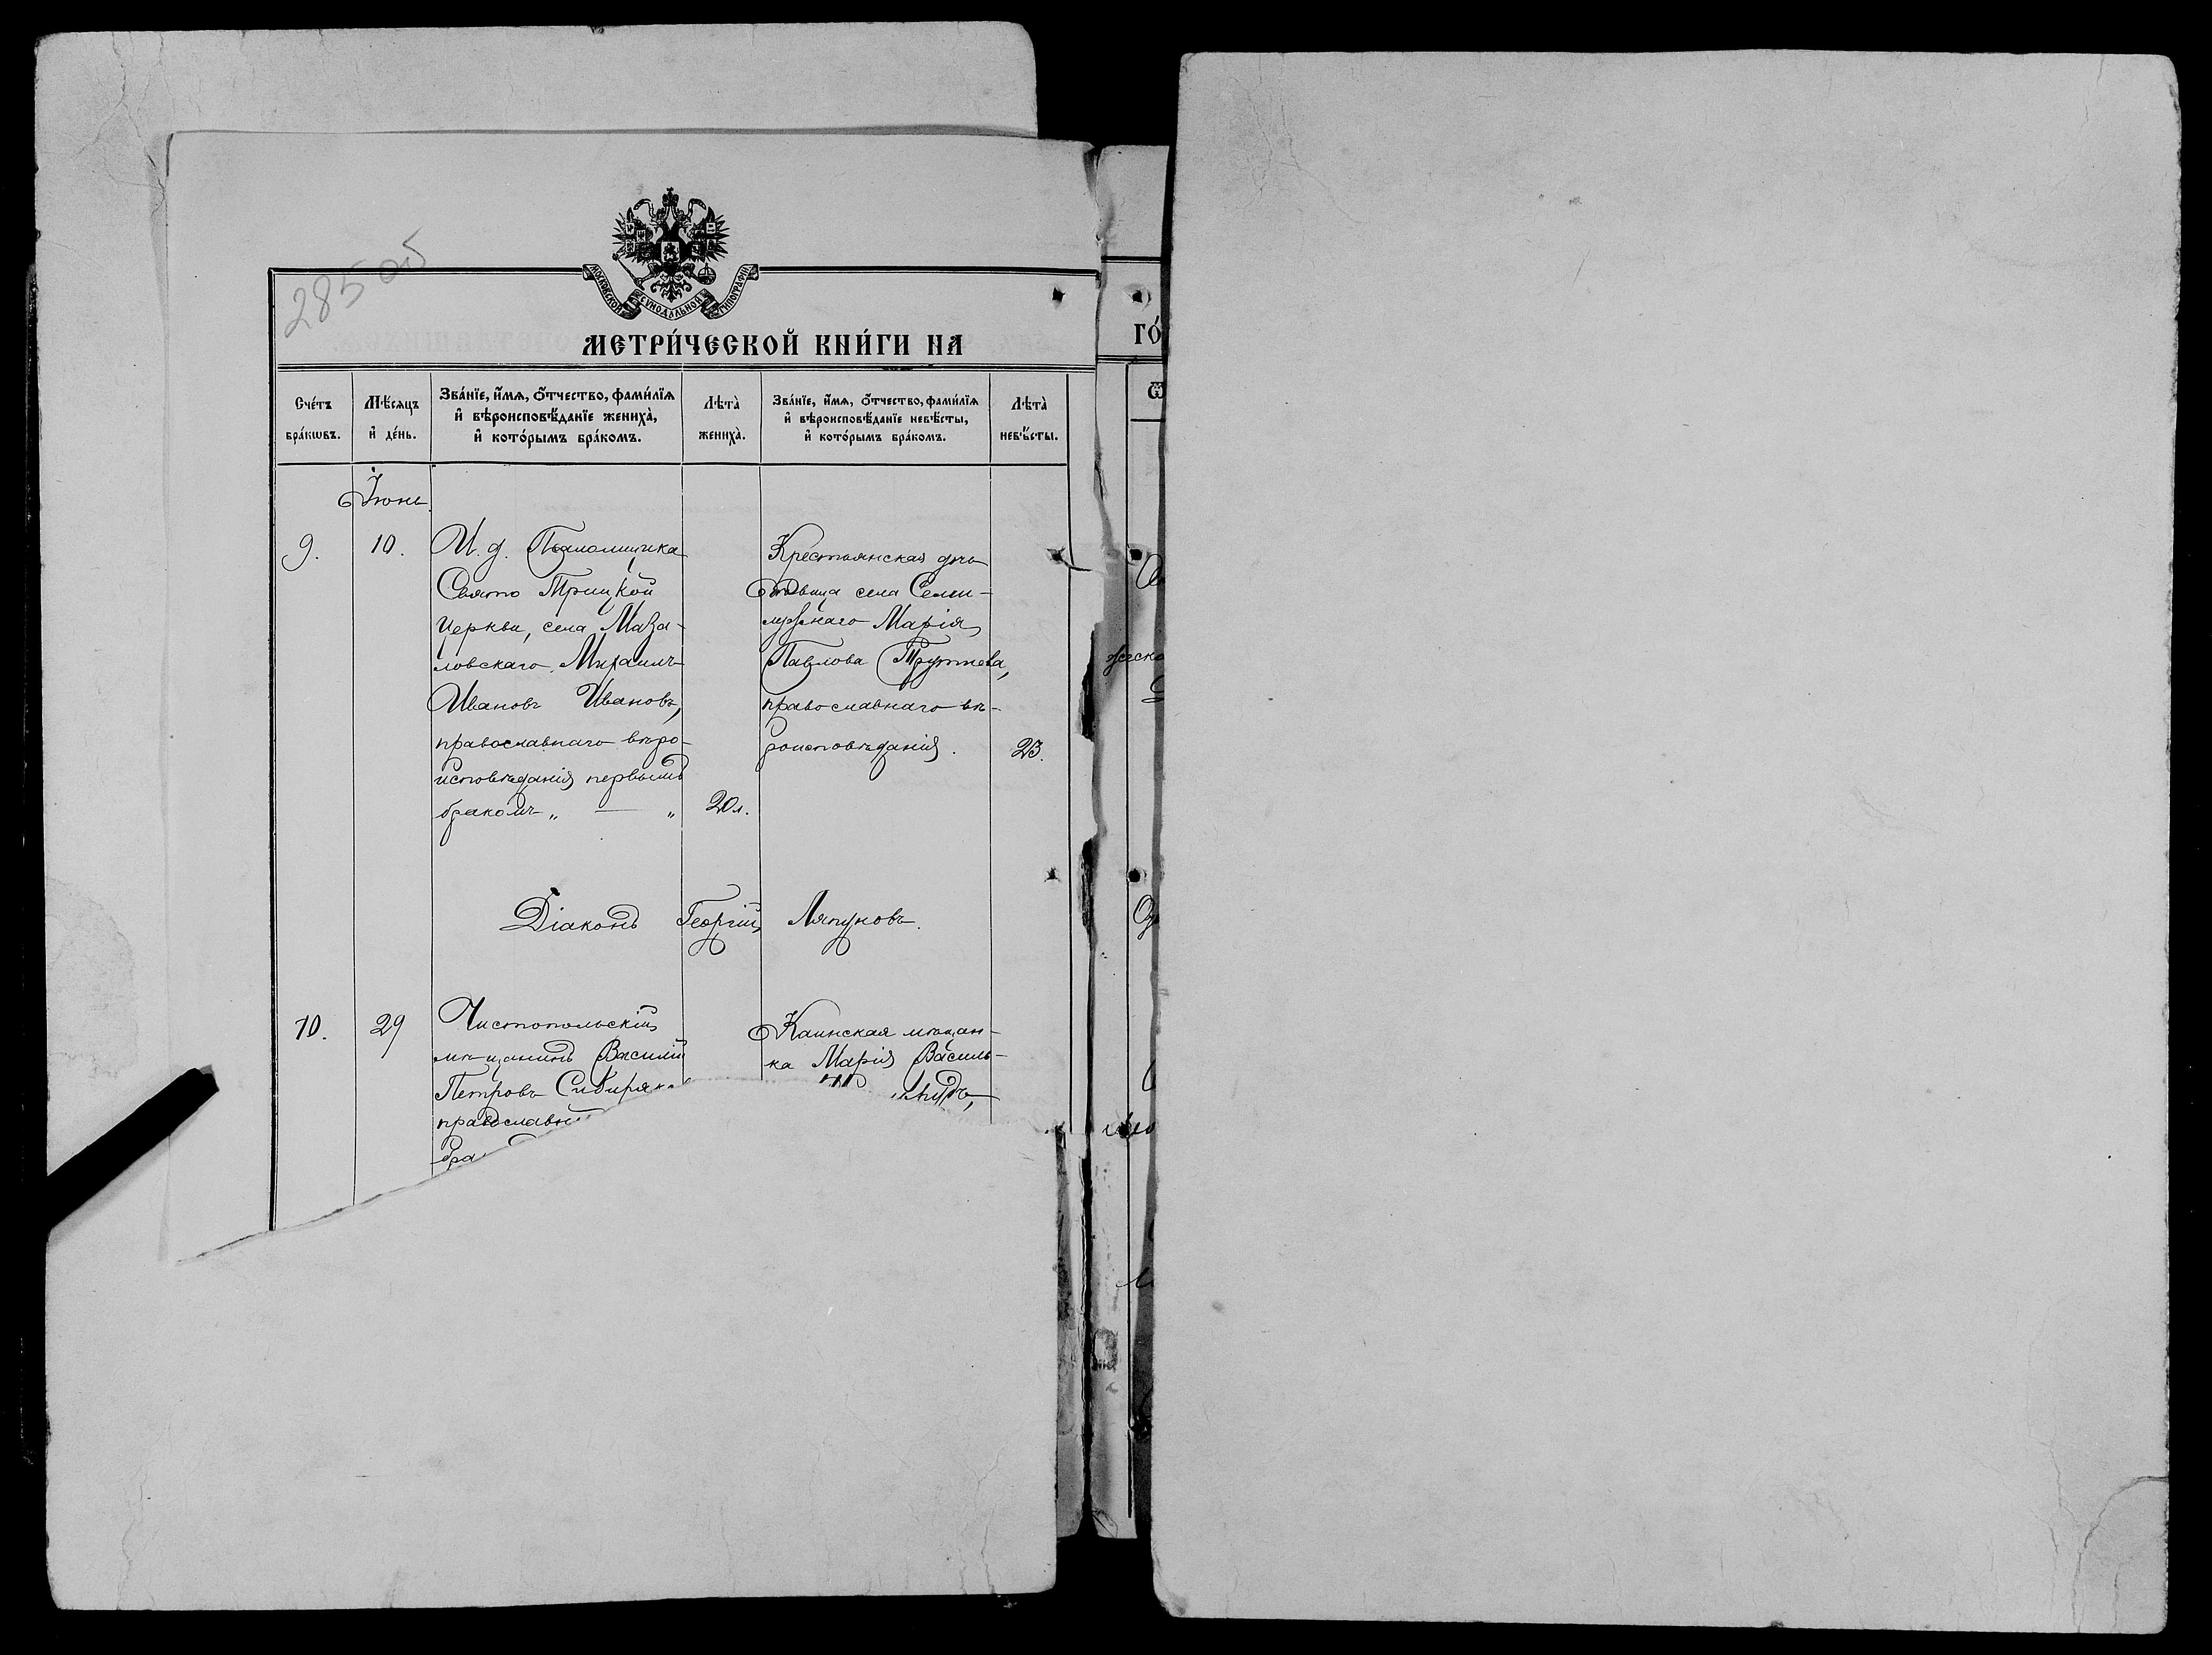 285 об
МОСКОВСКОЙ СѴНОДАЛЬНОЙ ТИПОГРАФІИ
МЕТРИ́ЧЕСКОЙ КНИ́ГИ НА
ГО́
Сче́тъ бра́кѡвъ.
Мѣ́сяцъ и҆ де́нь.
Зва́нїе, и҆́мѧ, ѻ҆́тчество, фами́лїѧ
и҆ вѣроисповѣ́данїе женихà,
и҆ кото́рымъ бра́комъ.
Лѣтà женихà.
Зва́нїе, и҆́мѧ, ѻ҆́тчество, фами́лїѧ
и҆ вѣроисповѣ́данїе невѣ́сты,
и҆ кото́рымъ бра́комъ.
Лѣтà невѣ́сты.
Іюнь
9.
10.
И. д. Псаломщика
Свято Троицкой
церкви, села Маза-
ловскаго Михаилъ
Ивановъ Ивановъ,
православнаго вѣро-
исповѣданія первымъ
бракомъ „ — „
20 л.
Крестьянская дочь
дѣвица села Семи-
лужнаго Марія
Павлова
православнаго вѣ-
роисповѣданія.
23.
Діаконъ Георгій Ляпуновъ.
10.
29
Чистопольскій
мѣщанинъ Василій
Петровъ Сибиряко
православн
бра
Каинская мѣщан-
ка Марія Василь-